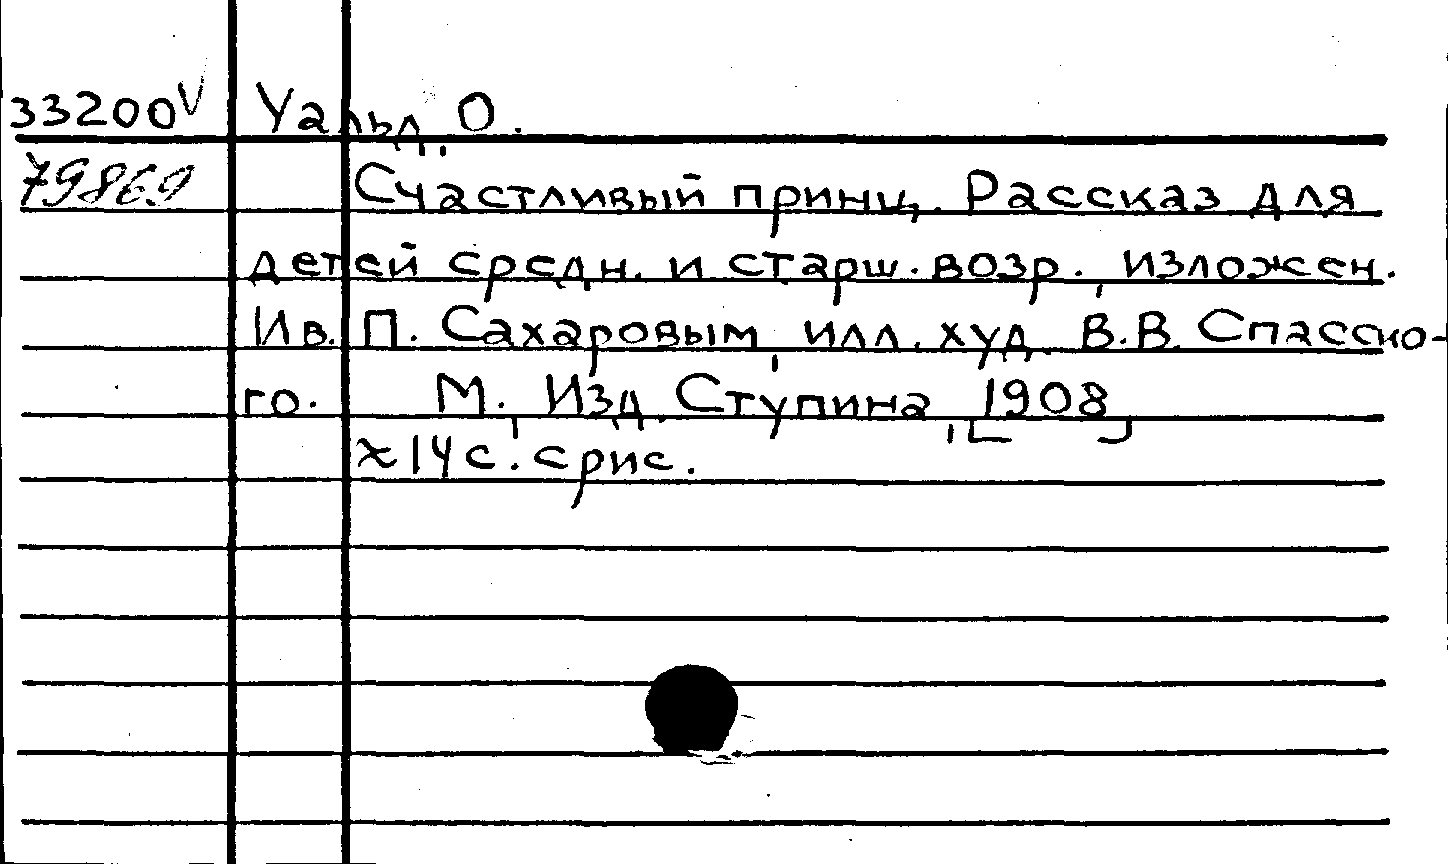 33200V Уальд, О.
79869 Счастливый принц. Рассказ для
детей средн. и старш. возр., изложен.
Ив. П. Сахаровым, илл. худ. В.В. Спасско-
го. М., Изд. Ступина, [1908]
14 с. с рис.